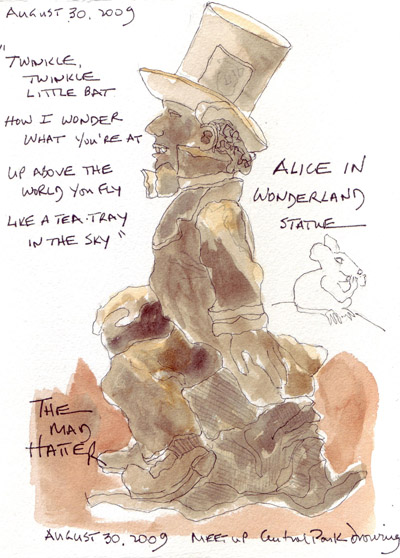 AUGUST 30, 2009
"TWINKLE,
TWINKLE
LITTLE BAT
HOW I WONDER
WHAT YOU'RE AT
UP ABOVE THE
WORLD YOU FLY
LIKE A TEA-TRAY
IN THE SKY"
ALICE IN
WONDERLAND
STATUE
THE
MAD
HATTER
AUGUST 30, 2009 MEETUP Central Park drawing